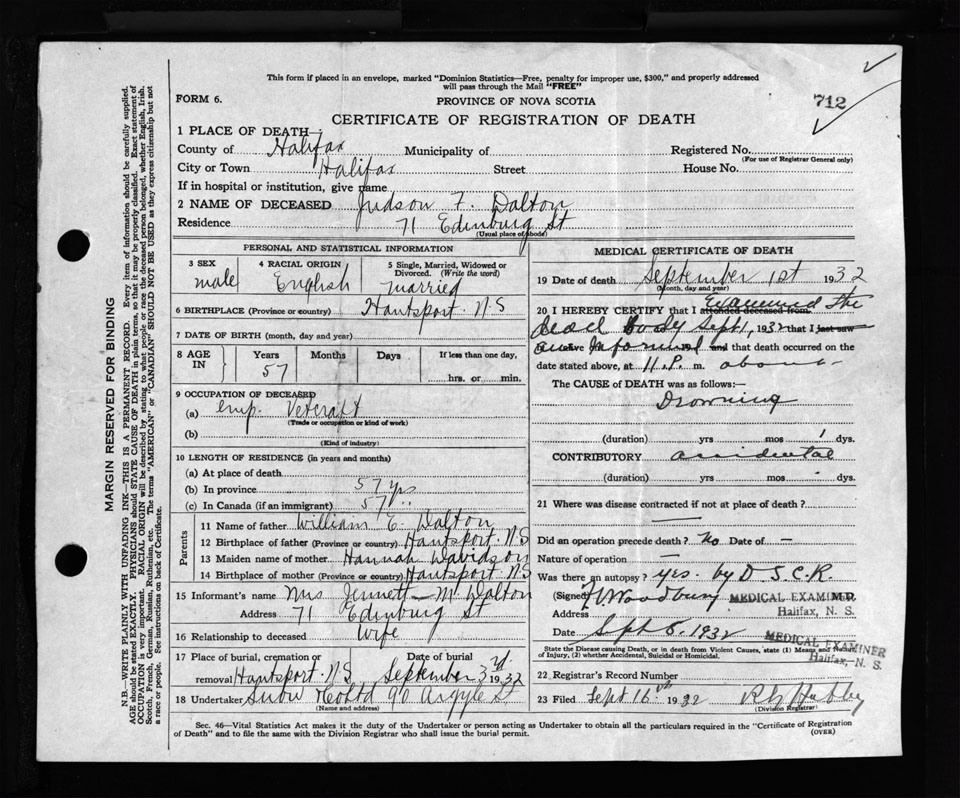 This form if placed in an envelope, marked "Dominion Statistics—Free, penalty for improper use, $300," and properly addressed
will pass through the Mail "FREE"
FORM 6.
PROVINCE OF NOVA SCOTIA
712
CERTIFICATE OF REGISTRATION OF DEATH
1 PLACE OF DEATH—
County of Halifax Municipality of Registered No.
(For use of Registrar General only)
City or Town Halifax Street House No.
If in hospital or institution, give name
2 NAME OF DECEASED Judson F. Dalton
Residence 71 Edinburg St
(Usual place of abode)
PERSONAL AND STATISTICAL INFORMATION
3 SEX 4 RACIAL ORIGIN 5 Single, Married, Widowed or
Divorced. (Write the word)
male English married
6 BIRTHPLACE (Province or country) Hantsport N S
7 DATE OF BIRTH (month, day and year)
8 AGE IN Years Months Days If less than one day,
57
hrs. or min.
9 OCCUPATION OF DECEASED
(a) emp. Vetcraft
(Trade or occupation or kind of work)
(b)
(Kind of industry)
10 LENGTH OF RESIDENCE (in years and months)
(a) At place of death
(b) In province 57 yrs
(c) In Canada (if an immigrant) 57
Parents
11 Name of father William E. Dalton
12 Birthplace of father (Province or country) Hantsport N.S
13 Maiden name of mother Hannah Davidson
14 Birthplace of mother (Province or country) Hantsport N.S
15 Informant's name Mrs Jennett M. Dalton
Address 71 Edinburg St
16 Relationship to deceased wife
17 Place of burial, cremation or Date of burial
removal Hantsport N S September 3rd 1932
18 Undertaker Snow & Co Ltd 90 Argyle St
(Name and address)
MEDICAL CERTIFICATE OF DEATH
19 Date of death September 1st 1932
(Month, day and year)
20 I HEREBY CERTIFY that I attended deceased from Examined the
dead body Sept 1, 1932 that I last saw
alive informed and that death occurred on the
date stated above, at 11. P. m. about
The CAUSE OF DEATH was as follows:—
Drowning
(duration) yrs mos 1 dys.
CONTRIBUTORY accidental
(duration) yrs mos dys.
21 Where was disease contracted if not at place of death?
Did an operation precede death? No Date of —
Nature of operation —
Was there an autopsy? yes. by D.S.C.R.
(Signed) Woodbury M.D. MEDICAL EXAMINER
Address Halifax, N. S.
Date Sept 5. 1932 MEDICAL EXAMINER
Halifax, N. S.
State the Disease causing Death, or in death from Violent Causes, state (1) Means and Nature
of Injury, (2) whether Accidental, Suicidal or Homicidal.
22 Registrar's Record Number
23 Filed Sept 16th 1932
(Division Registrar)
Sec. 46—Vital Statistics Act makes it the duty of the Undertaker or person acting as Undertaker to obtain all the particulars required in the "Certificate of Registration
of Death" and to file the same with the Division Registrar who shall issue the burial permit.
(OVER)
MARGIN RESERVED FOR BINDING
N.B.—WRITE PLAINLY WITH UNFADING INK—THIS IS A PERMANENT RECORD. Every item of information should be carefully supplied.
AGE should be stated EXACTLY. PHYSICIANS should STATE CAUSE OF DEATH in plain terms, so that it may be properly classified. Exact statement of
OCCUPATION is very important. RACIAL ORIGIN will be described by stating to what people or race the deceased person belonged, whether English, Irish,
Scotch, French, German, Russian, Ruthenian, etc. The terms "AMERICAN" or "CANADIAN" SHOULD NOT BE USED as they express citizenship but not
a race or people. See instructions on back of Certificate.